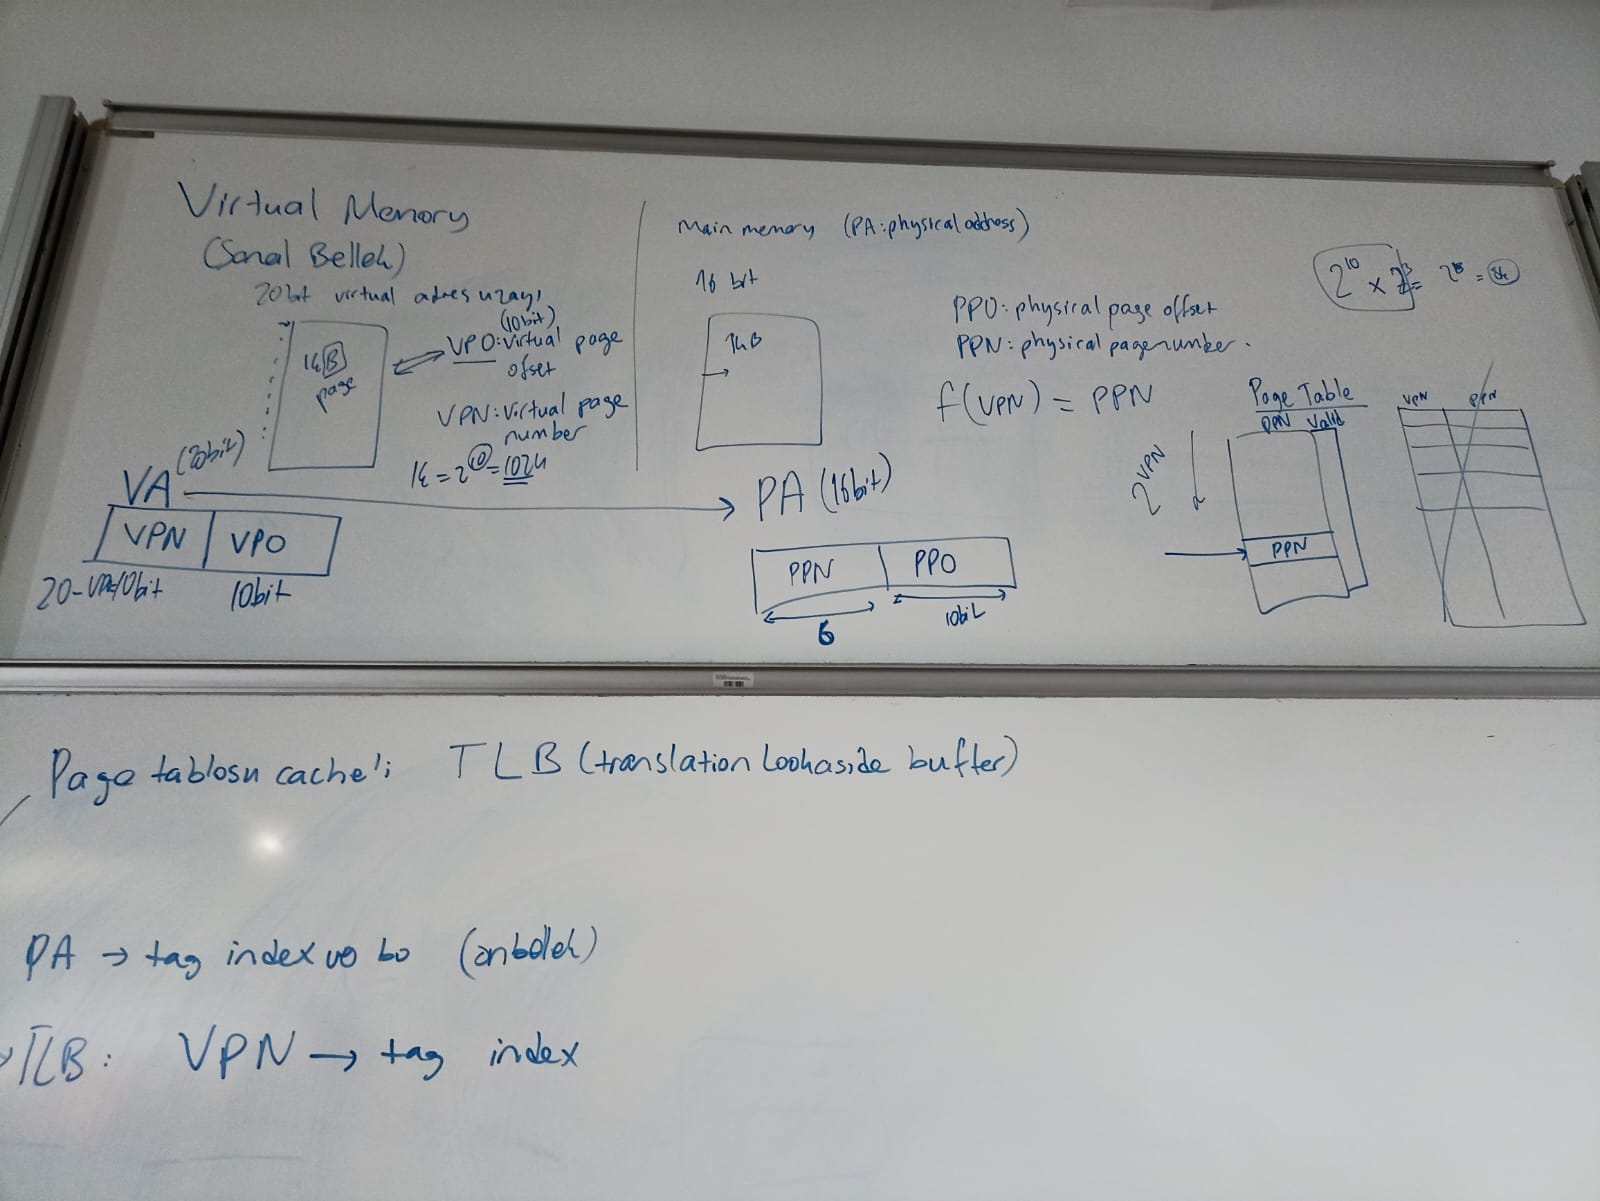 Virtual Memory
(Sanal Bellek)
20bit virtual adres uzayı
1kB
page
(10bit)
VPO: virtual page
ofset
VPN: virtual page
number
1k = 2^10 = 1024
VA (20bit)
VPN | VPO
10bit
Main memory (PA: physical address)
16 bit
1kB
PA (16bit)
PPN | PPO
6
10bit
PPO: physical page offset
PPN: physical page number.
f(VPN) = PPN
2^10 x
Page Table
PPN Valid
2^VPN
PPN
VPN PPN
Page tablosu cache'i TLB (translation lookaside buffer)
PA → tag index ve bo (önbellek)
TLB: VPN → tag index